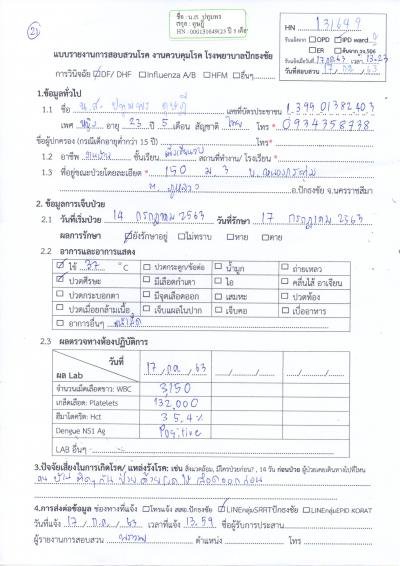 (2)
ชื่อ : น.ส. ปทุมพร
สกุล : ดุษฎี
HN : 000131649(23 ปี 5 เดือน
HN 131649
รับแจ้งจาก ☐OPD ☑IPD ward
☐ER ☐ค้นจาก รง.506
รับแจ้งเมื่อวันที่ 17 กค 63 เวลา 13:23
วันที่สอบสวน 17 / 07 / 63
แบบรายงานการสอบสวนโรค งานควบคุมโรค โรงพยาบาลปักธงชัย
การวินิจฉัย ☑DF/ DHF ☐Influenza A/B ☐HFM ☐อื่นๆ
1.ข้อมูลทั่วไป
1.1 ชื่อ น.ส. ปทุมพร ดุษฎี เลขที่บัตรประชาชน
เพศ หญิง อายุ 23 ปี 5 เดือน สัญชาติ ไทย โทร* 0934358738
ชื่อผู้ปกครอง (กรณีเด็กอายุต่ำกว่า 15 ปี) โทร*
1.2 อาชีพ ชั้นเรียน สถานที่ทำงาน/ โรงเรียน *
1.3 ที่อยู่ขณะป่วยโดยละเอียด * 150 ม.3 บ.
ต. อ.ปักธงชัย จ.นครราชสีมา
2. ข้อมูลการเจ็บป่วย
2.1 วันที่เริ่มป่วย 14 กรกฎาคม 2563 วันที่รักษา 17 กรกฎาคม 2563
ผลการรักษา ☑ยังรักษาอยู่ ☐ไม่ทราบ ☐หาย ☐ตาย
2.2 อาการและอาการแสดง
☑ ไข้ 37 °C ☐ ปวดกระดูก/ข้อต่อ ☐ น้ำมูก ☐ ถ่ายเหลว
☑ ปวดศีรษะ ☐ มีเลือดกำเดา ☐ ไอ ☐ คลื่นไส้ อาเจียน
☐ ปวดกระบอกตา ☐ มีจุดเลือดออก ☐ เสมหะ ☐ ปวดท้อง
☐ ปวดเมื่อยกล้ามเนื้อ ☐ เจ็บแผลในปาก ☐ เจ็บคอ ☐ เบื่ออาหาร
☐ อาการอื่นๆ
2.3 ผลตรวจทางห้องปฏิบัติการ
วันที่ 17 / กค / 63 / / / /
ผล Lab
จำนวนเม็ดเลือดขาว: WBC 3150
เกล็ดเลือด: Platelets 132,000
ฮีมาโตคริต: Hct 35.4%
Dengue NS1 Ag Positive
LAB อื่นๆ
3.ปัจจัยเสี่ยงในการเกิดโรค/ แหล่งรังโรค: เช่น สิ่งแวดล้อม, มีใครป่วยก่อน? , 14 วัน ก่อนป่วย ผู้ป่วยเคยเดินทางไปที่ไหน
คน บ้าน ติดๆ กัน ป่วย ด้วย ไข้ เลือดออกก่อน
4.การส่งต่อข้อมูล ช่องทางที่แจ้ง ☐โทรแจ้ง สสอ.ปักธงชัย ☑LINEกลุ่มSRRTปักธงชัย ☐LINEกลุ่มEPID KORAT
วันที่แจ้ง 17 / ก.ค. / 63 เวลาที่แจ้ง 13.59 ชื่อผู้รับการประสาน
ผู้รายงานการสอบสวน ตำแหน่ง โทร